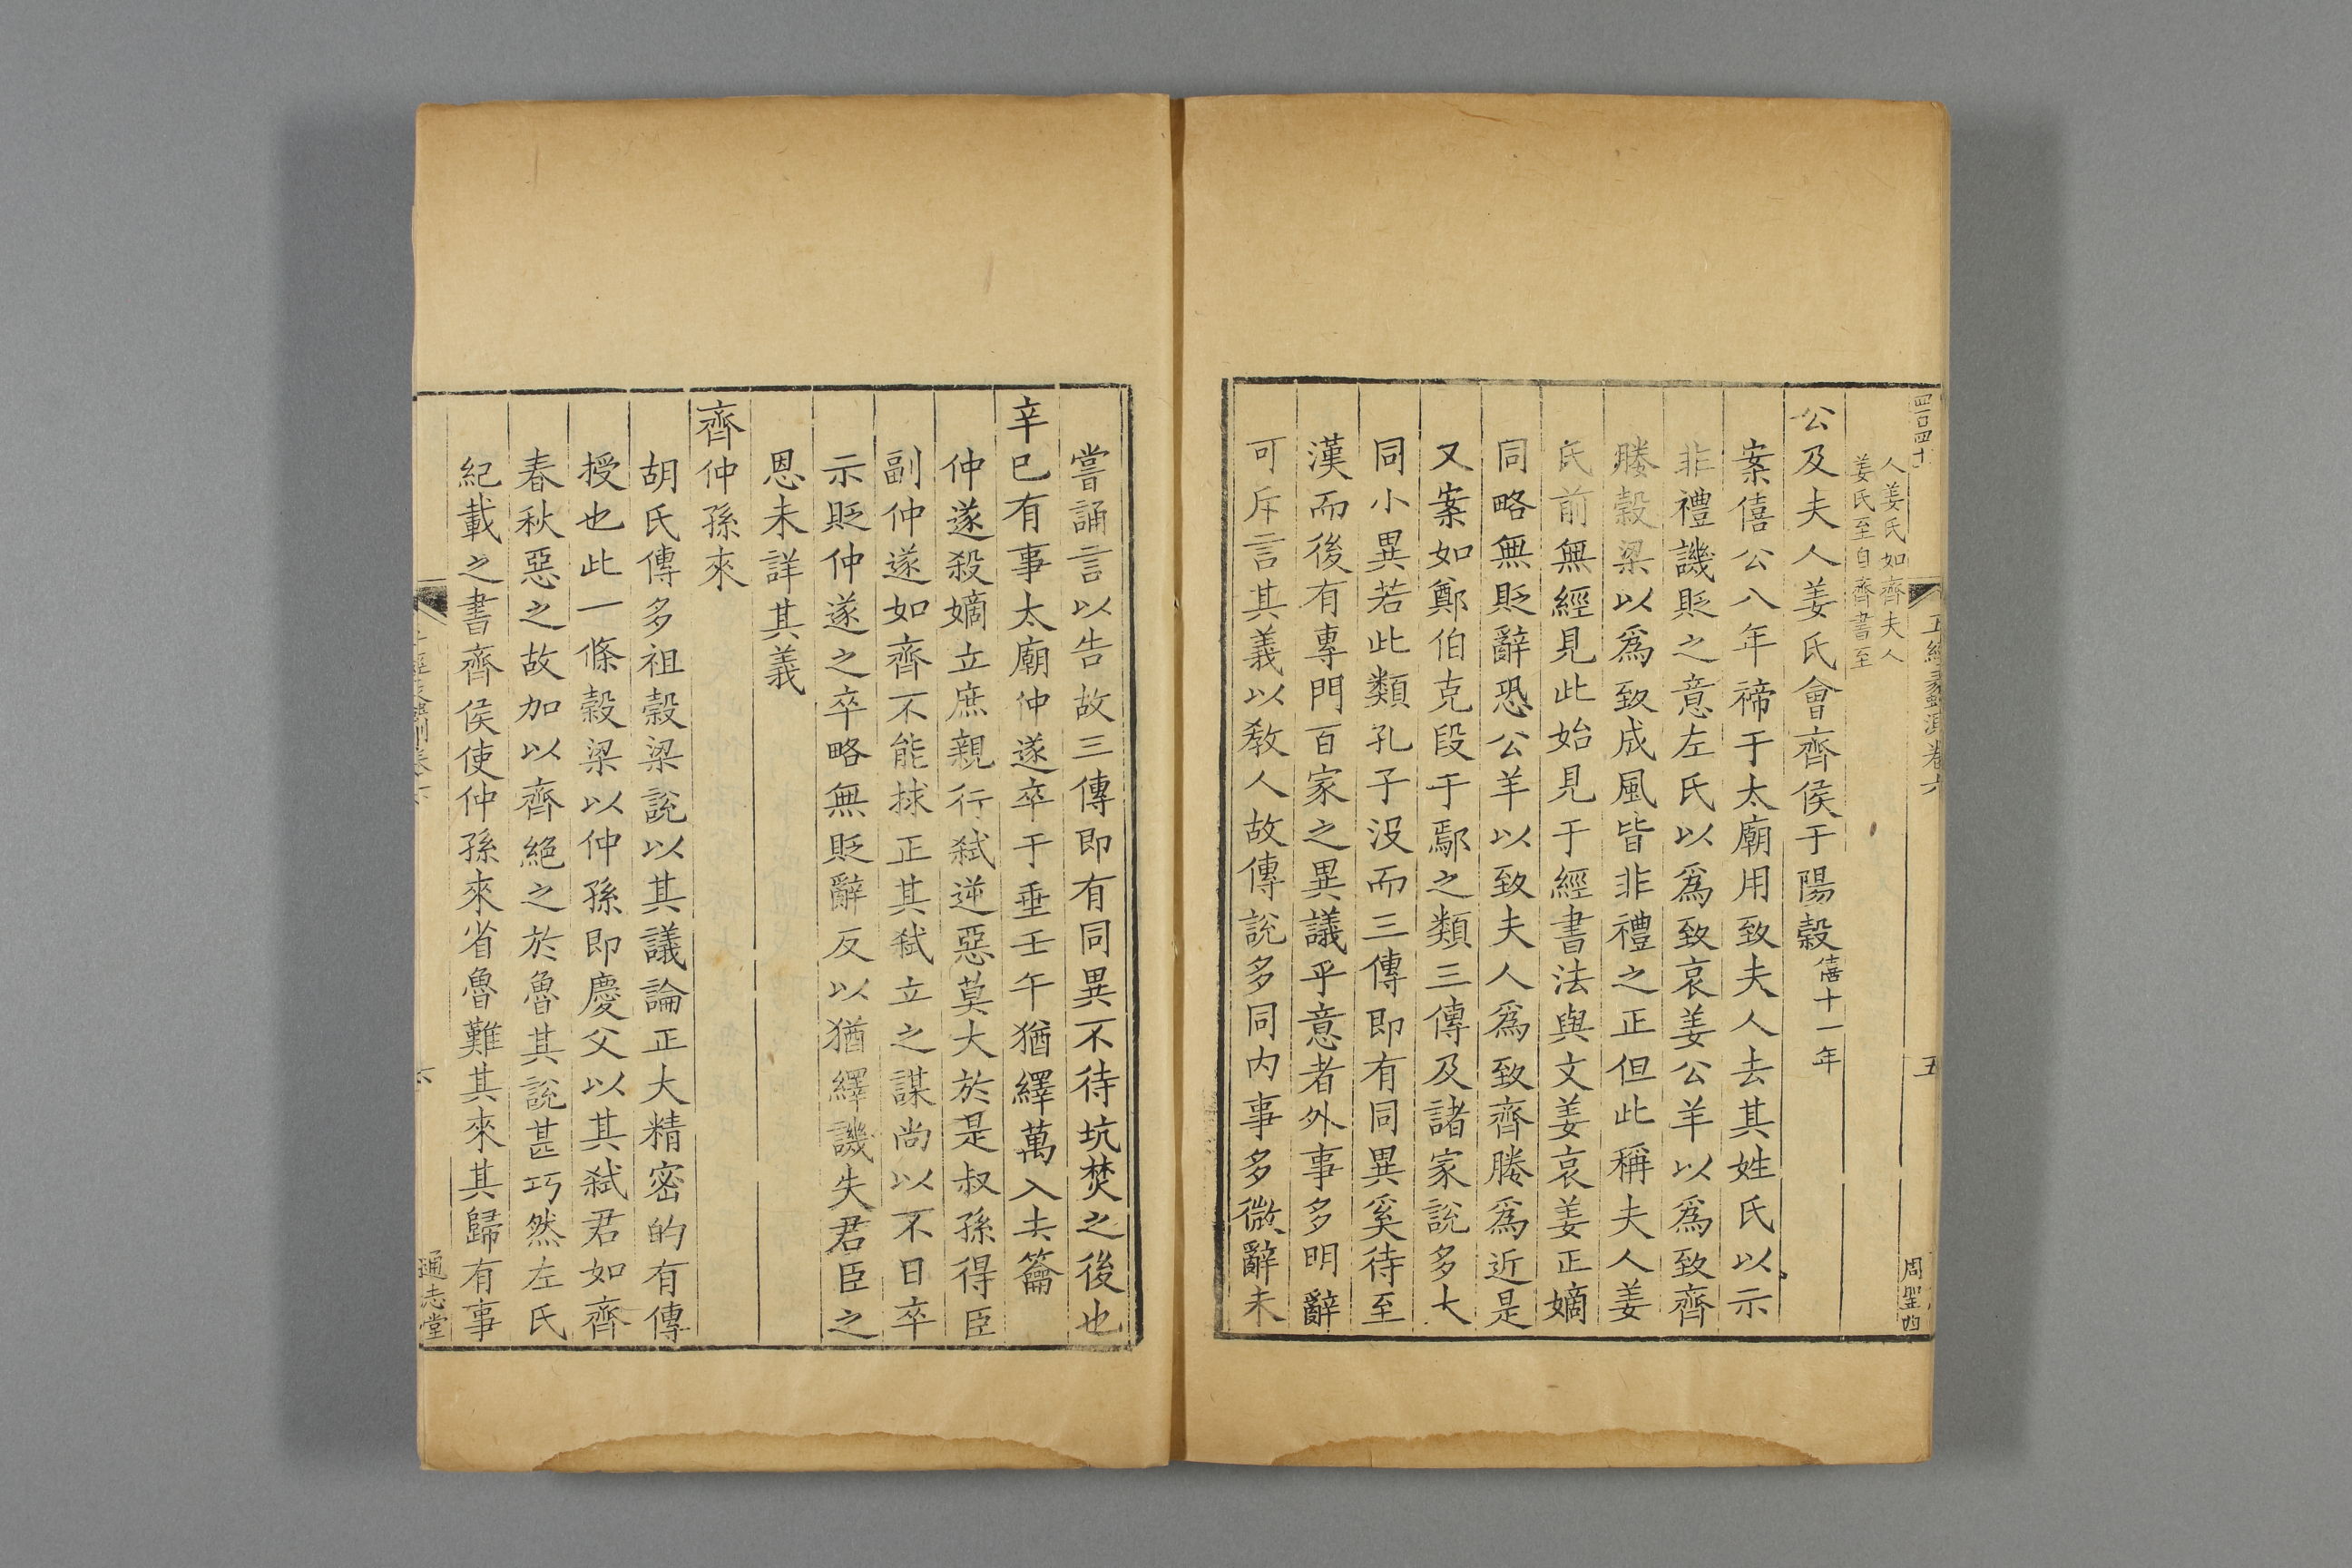 人姜氏如齊夫人
姜氏至自齊書至
公及夫人姜氏會齊侯于陽穀僖十一年
案僖公八年禘于太廟用致夫人去其姓氏以示
非禮譏貶之意左氏以爲致哀姜公羊以爲致齊
媵穀梁以爲致成風皆非禮之正但此稱夫人姜
氏前無經見此始見于經書法與文姜哀姜正嫡
同略無貶辭恐公羊以致夫人爲致齊媵爲近是
又案如鄭伯克段于鄢之類三傳及諸家說多大
同小異若此類孔子沒而三傳即有同異奚待至
漢而後有專門百家之異議乎意者外事多明辭
可斥言其義以敎人故傳說多同內事多微辭未
嘗誦言以告故三傳即有同異不待坑焚之後也
辛巳有事太廟仲遂卒于垂壬午猶繹萬入去籥
仲遂殺嫡立庶親行弑逆惡莫大於是叔孫得臣
副仲遂如齊不能捄正其弑立之謀尚以不日卒
示貶仲遂之卒略無貶辭反以猶繹譏失君臣之
恩未詳其義
齊仲孫來
胡氏傳多祖穀梁說以其議論正大精密的有傳
授也此一條穀梁以仲孫即慶父以其弑君如齊
春秋惡之故加以齊絕之於魯其說甚巧然左氏
紀載之書齊侯使仲孫來省魯難其來其歸有事
通志堂